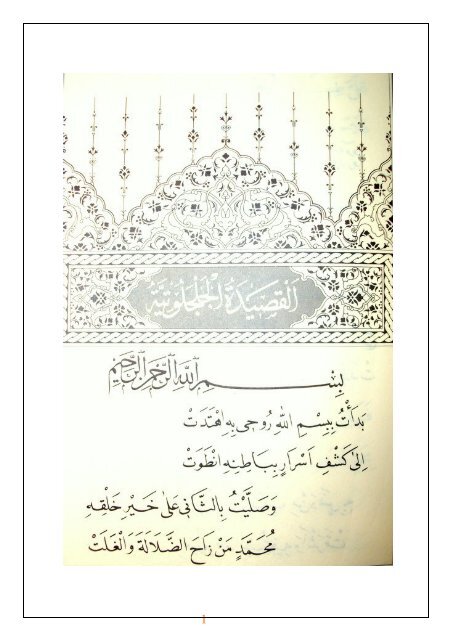 القصيدة الجلجلوتية
بِسْمِ اللّٰهِ الرَّحْمٰنِ الرَّحِيْمِ
بَدَأْتُ بِبِسْمِ اللّٰهِ رُوحِى بِهِ اهْتَدَتْ
اِلٰى كَشْفِ اَسْرَارٍ بِبَاطِنِهِ انْطَوَتْ
وَصَلَّيْتُ بِالثَّانِى عَلٰى خَيْرِ خَلْقِهِ
مُحَمَّدٍ مَنْ زَاحَ الضَّلَالَةَ وَالْغَلَتْ
1